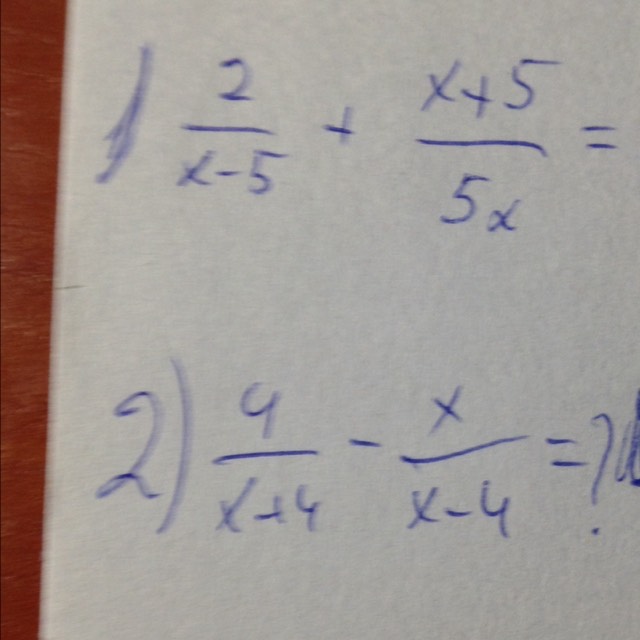 1) 2/(x-5) + (x+5)/(5x) =
2) 4/(x+4) - x/(x-4) = ?